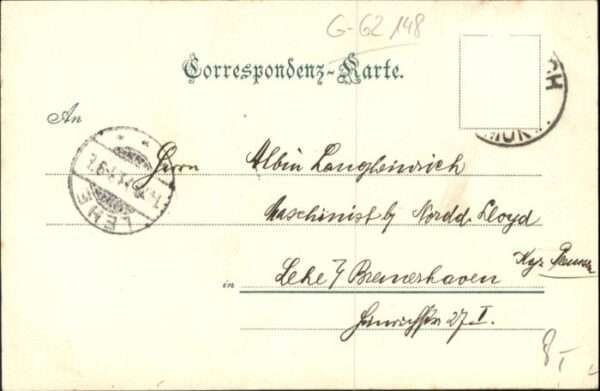 G-62 148
Correspondenz-Karte.
An
LEHE
Herrn Albin Langheinrich
Maschinist b/ Nordd. Lloyd
in Lehe b/ Bremerhaven
Heinrichstr 27 I.
8,-